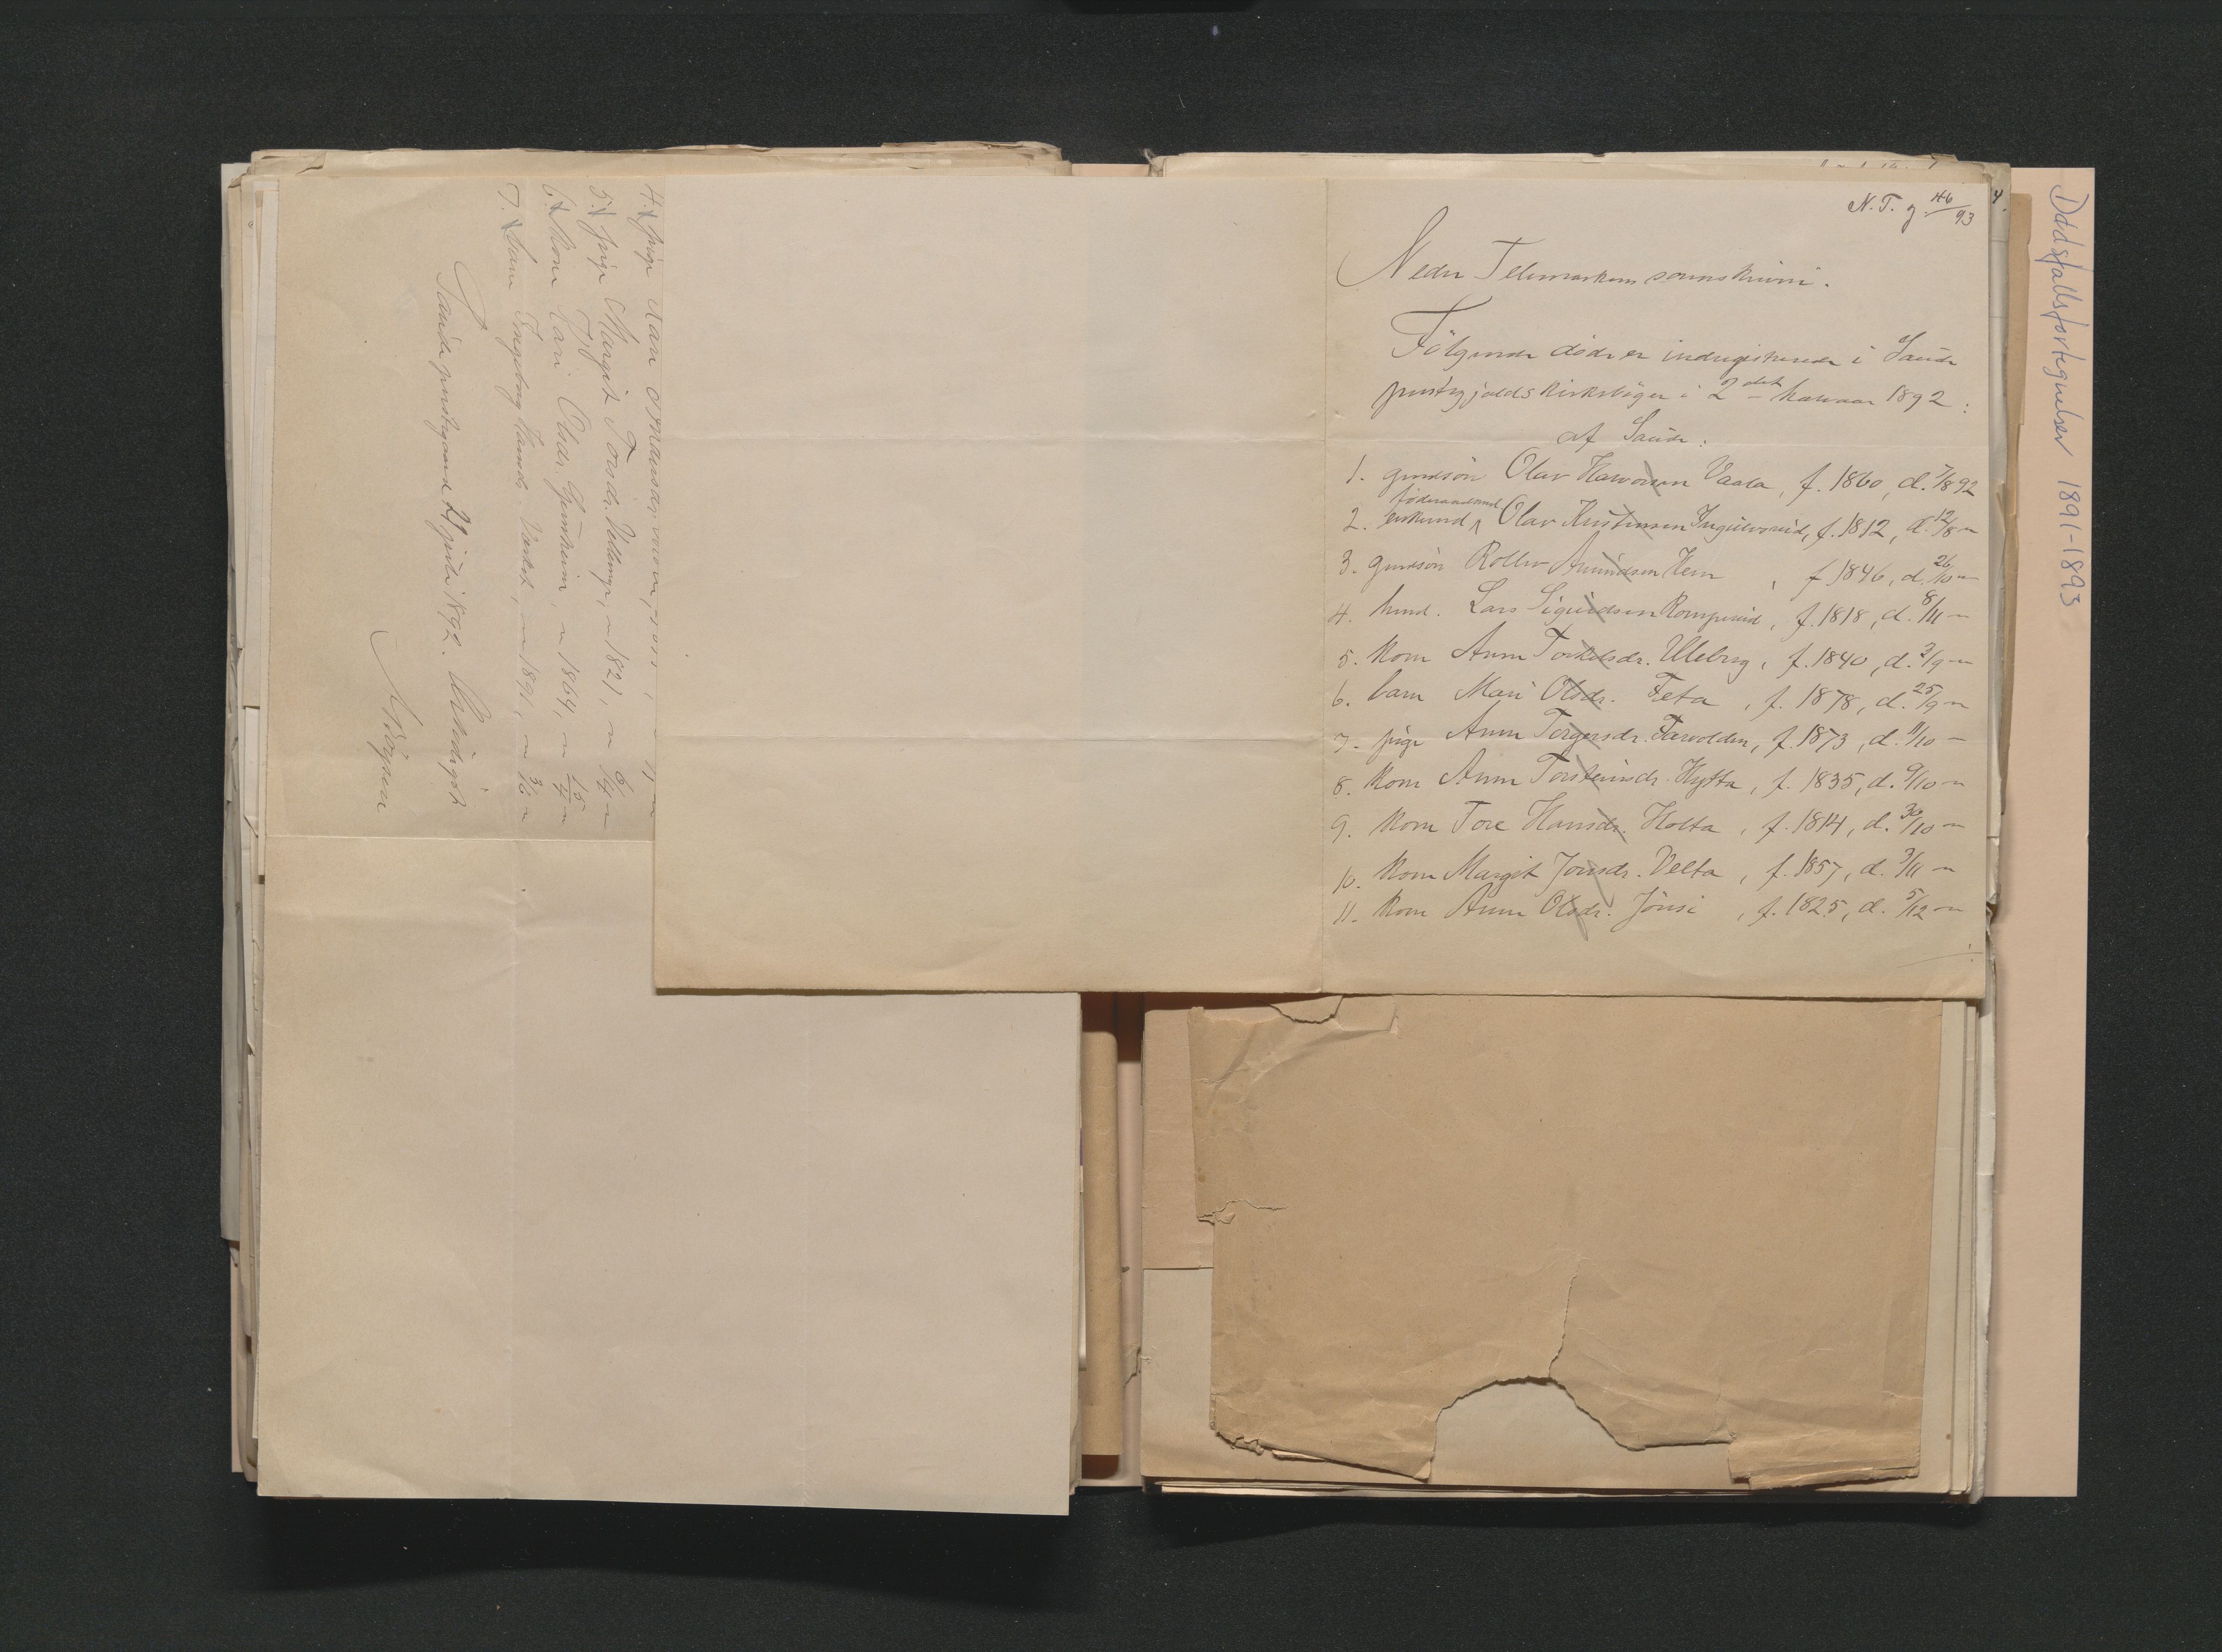 N. T. j. 46/93
Nedre Telemarkens sorenskriveri.
Følgende døde er indregistrerede i Saude
prestegjælds kirkebøger i 2det halvaar 1892:
af Saude:
1. gmdsön Olav Halvorsen Vaala, f. 1860, d. 7/8 92
föderaadsmd
2. enkemd Olav Kristensen Ingulvsrud, f. 1812, d. 12/8 "
3. gmdsön Rollev Amundsen Hem, f 1846, d. 26/10 "
4. husmd. Lars Sigurdsen Rompurud, f. 1818, d. 8/11 "
5. kone Anne Torkelsdr. Uleberg, f. 1840, d. 2/9 "
6. barn Mari Olsdr. Feta, f. 1878, d. 25/9 "
7. pige Anne Torgersdr. Farvolden, f. 1873, d. 11/10 "
8. kone Anne Torsteinsdr. Hytta, f. 1835, d. 9/10 "
9. kone Tore Hansdr. Holta, f. 1814, d. 30/10 "
10. kone Margit Jonsdr. Velta, f. 1857, d. 3/11 "
11. kone Anne Olsdr. Jönsi, f. 1825, d. 5/12 "
4. pige
5. pige Margit Torsdr. Vellinge, " 1821, " 6/4 "
6. kone Kari Olsdr. " 1864, " 15/4 "
7. barn Ingeborg Hansdr. " 1891, " 3/6 "
Saude prestegaard 21 juli 1892. Ærbødigst
Dødsfallsfortegnelser 1891-1893